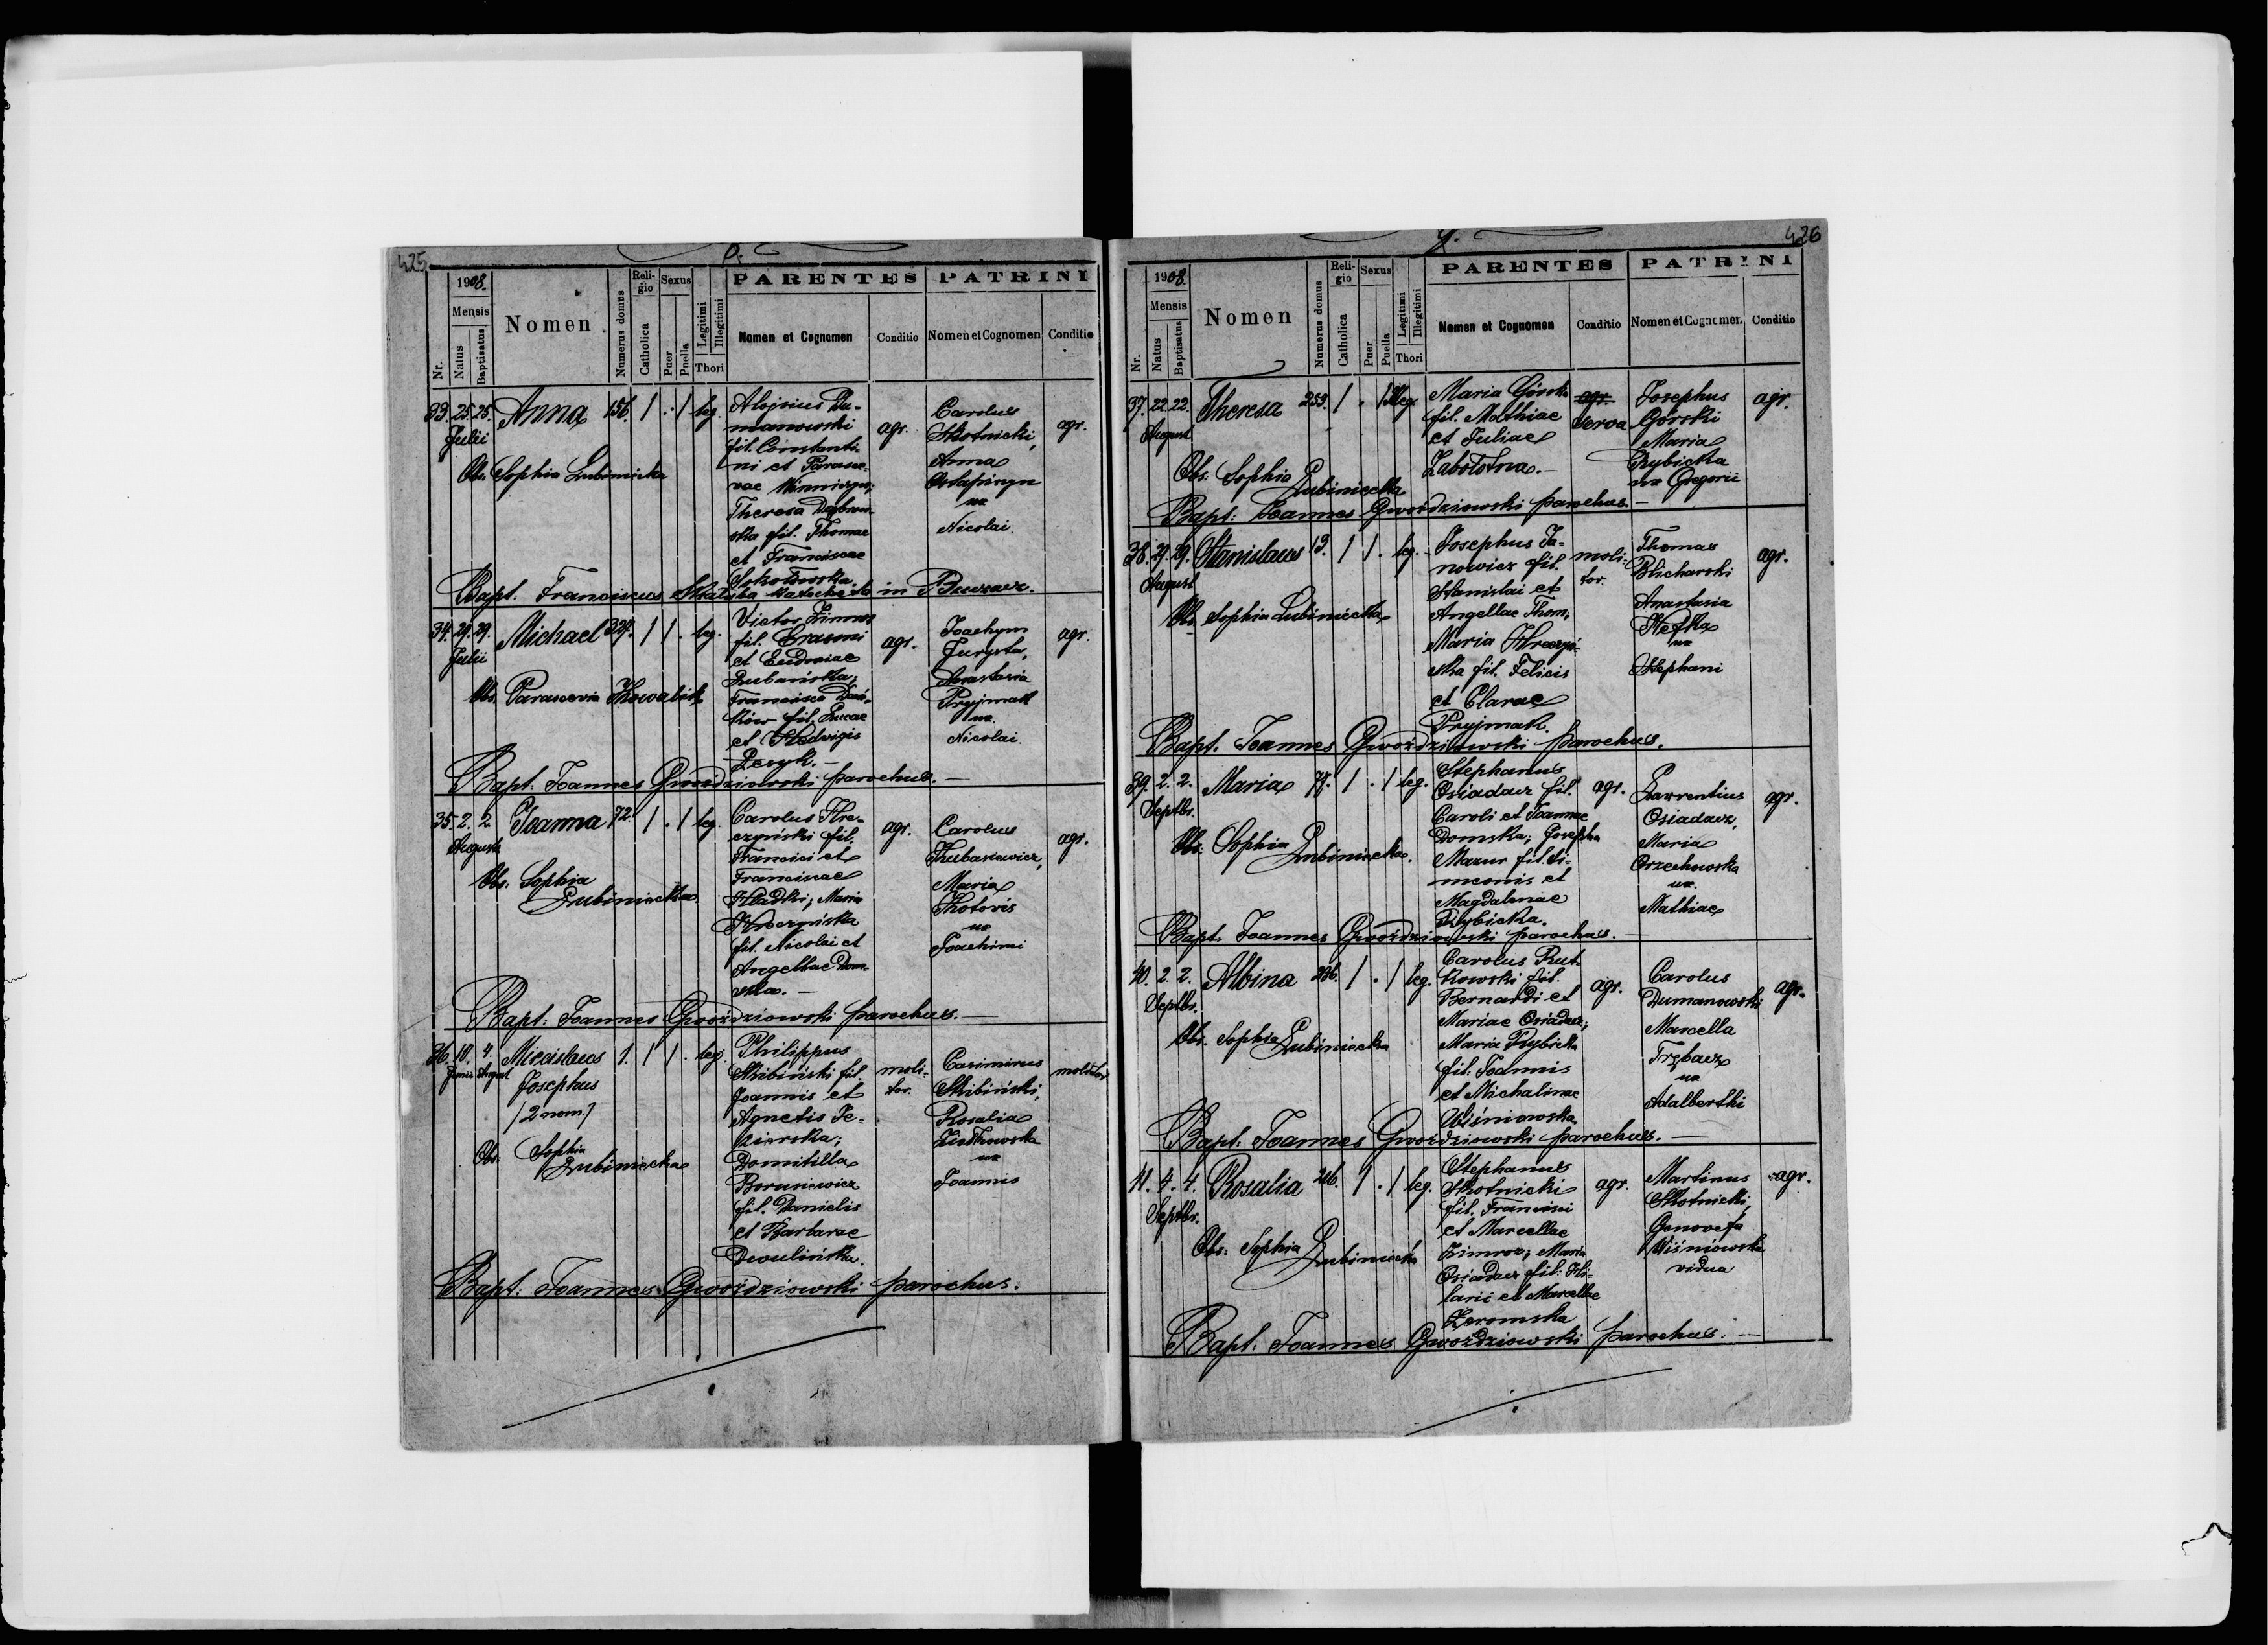 425
1908.
Mensis
Nr.
Natus
Baptisatus
Nomen
Numerus domus
Religio
Catholica
Sexus
Puer
Puella
Legitimi
Illegitimi
Thori
PARENTES
Nomen et Cognomen
Conditio
PATRINI
Nomen et Cognomen
Conditio
33. 25. 25. Anna 156. 1 . 1 leg.
Julii
Obs. Sophia Lubiniecka
Aloisius Du-
manowski
fil. Constanti-
ni et Parasce-
vae
Theresa Dąbrow-
ska fil. Thomae
et Franciscae
Sokołowska.
agr.
Carolus
Skotnicki,
Anna
ux
Nicolai.
agr.
Bapt. Franciscus Skałuba katecheta in Buczacz.
34. 29. 29. Michael 324. 1 1 . leg.
Julii
Obs. Parascevia Kowaluk
Victor Zimroz
fil. Erasmi
et Eudoxiae
Lubańska;
Francisca
fil. Lucae
et Hedvigis
agr.
Joachym
Jurysta,
Anastasia
Pryjmak
ux.
Nicolai.
agr.
Bapt. Joannes Gwoździowski parochus. —
35. 2. 2. Joanna 72. 1 . 1 leg.
Augusti
Obs: Sophia
Lubiniecka
Carolus Hre-
czyński fil.
Francisci et
Franciscae
Hładki; Maria
Hreczyńska
fil. Nicolai et
Angellae Dom-
ska. —
agr.
Carolus
Maria
ux
Joachimi
agr.
Bapt: Joannes Gwoździowski parochus. —
36. 18. 4. Miecislaus 1. 1 1 . leg.
Junii August
Josephus
/2 nom./
Obs: Sophia
Lubiniecka
Philippus
Skibiński fil.
Joannis et
Agnetis Je-
zierska;
Domitilla
Borusiewicz
fil. Danielis
et Barbarae
Dwulińska.
moli-
tor.
Casimirus
Skibiński,
Rosalia
ux
Joannis
molitor
Bapt: Joannes Gwoździowski parochus.
426
1908.
Mensis
Nr.
Natus
Baptisatus
Nomen
Numerus domus
Religio
Catholica
Sexus
Puer
Puella
Legitimi
Illegitimi
Thori
PARENTES
Nomen et Cognomen
Conditio
PATRINI
Nomen et Cognomen
Conditio
37. 22. 22. Theresa 259. 1 . 1 Illeg
August
Obs. Sophia
Lubiniecka
Maria Górska
fil. Mathiae
et Juliae
Zabołotna. —
agr.
serva
Josephus
Górski
Maria
Rybicka
ux Gregorii
agr.
Bapt: Joannes Gwoździowski parochus. —
38. 29. 29. Stanislaus 13. 1 1 . leg.
August
Obs. Sophia Lubiniecka
Josephus Ja-
nowicz fil.
Stanislai et
Angellae Thom;
Maria Hreczyń-
ska fil. Felicis
et Clarae
Pryjmak.
moli-
tor.
Thomas
Blicharski
Anastasia
ux
Stephani
agr.
Bapt. Joannes Gwoździowski parochus.
39. 2. 2. Maria 77. 1 . 1 leg.
Septbr.
Obs. Sophia
Lubiniecka.
Stephanus
Osiadacz fil.
Caroli et Joannae
Domska; Josepha
Mazur fil. Si-
meonis et
Magdalenae
Rybicka.
agr.
Laurentius
Osiadacz,
Maria
Orzechowska
ux.
Mathiae
agr.
Bapt. Joannes Gwoździowski parochus. —
40. 2. 2. Albina 236. 1 . 1 leg.
Septbr.
Obs. Sophia Lubiniecka
Carolus Rut-
kowski fil.
Bernardi et
Mariae Osiadacz;
Maria Rybicka
fil: Joannis
et Michalinae
Wiśniowska.
agr.
Carolus
Dumanowski
Marcella
Trębacz
ux
Adalberthi
agr.
Bapt. Joannes Gwoździowski parochus. —
41. 4. 4. Rosalia 216. 1 . 1 leg.
Septbr.
Obs: Sophia
Lubiniecka
Stephanus
Skotnicki
fil. Francisci
et Marcellae
Zimroz; Maria
Osiadacz fil: Hi-
larii et Marcellae
Żeromska
agr.
Martinus
Skotnicki,
Genovefa
Wiśniowska
vidua
agr.
Bapt: Joannes Gwoździowski parochus. —